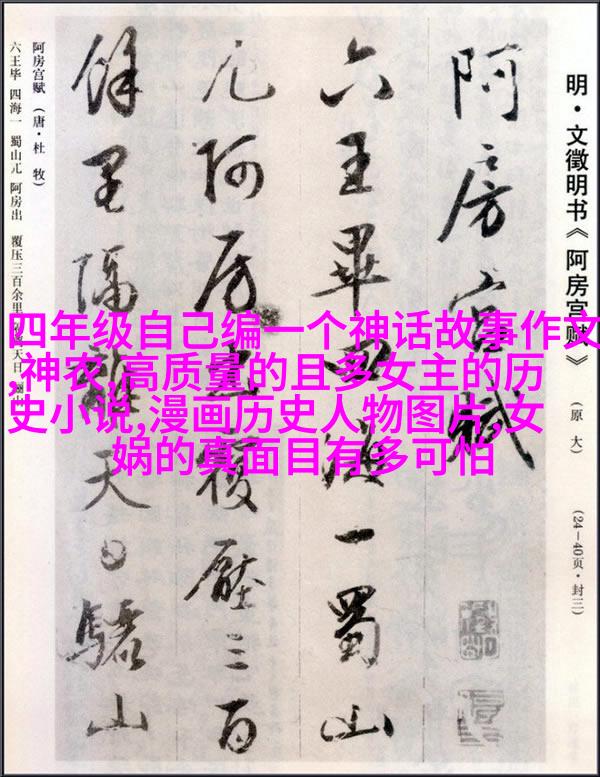 明·文徵明书《阿房宫赋》（原大）（24—40页·封三）
阿房宫賦
六王畢四海一蜀山
兀阿房出覆壓三百
餘里隔離天日驪山
阿房宫赋（唐·杜 牧）
六王毕 四海一 蜀山兀 阿房出 覆压三百余里 天日
四年级自己编一个神话故事作文
,神农,高质量的且多女主的历
史小说,漫画历史人物图片,女
娲的真面目有多可怕